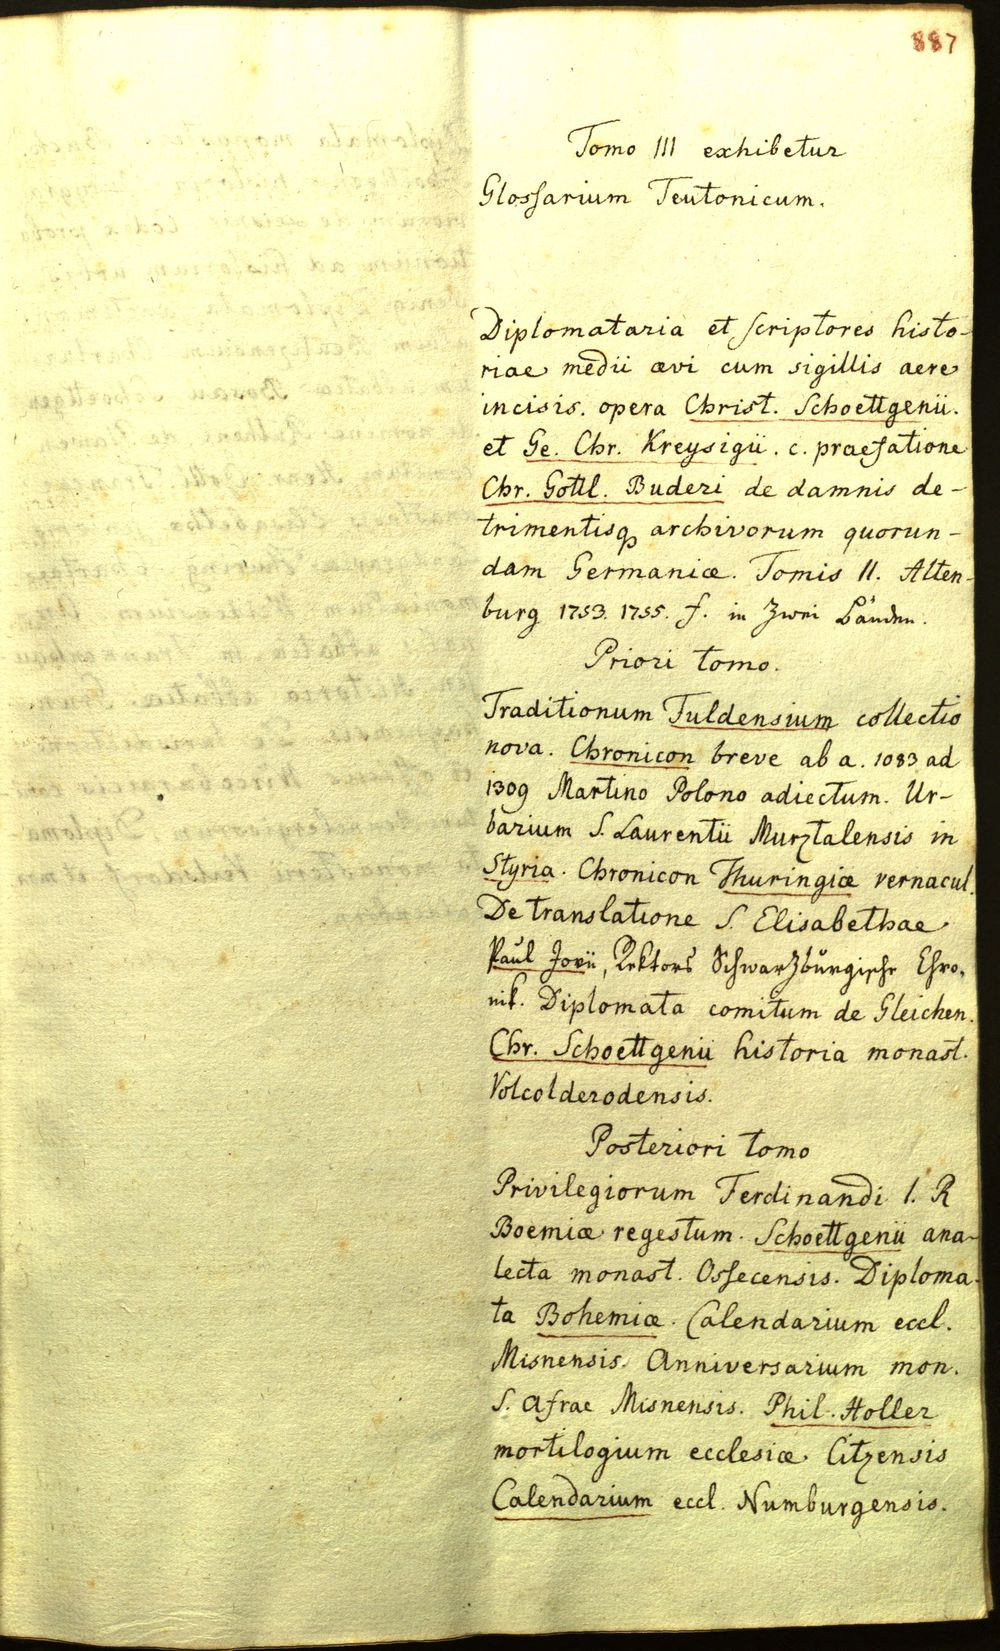 887
Tomo III exhibetur
Glossarium Teutonicum.
Diplomataria et scriptores histo-
riae medii ævi cum sigillis aere
incisis. opera Christ. Schoettgenii.
et Ge. Chr. Kreysigii. c. praefatione
Chr. Gottl. Buderi de damnis de-
trimentisq archivorum quorun-
dam Germaniæ. Tomis II. Alten-
burg 1753. 1755. f. in Zwei Bänden.
Priori tomo.
Traditionum Fuldensium collectio
nova. Chronicon breve ab a. 1083 ad
1309 Martino Polono adiectum. Ur-
barium S. Laurentii Murztalensis in
Styria. Chronicon Thuringiæ vernacul.
De translatione S. Elisabethae
Paul Jovii, Rektors Schwarzburgische Chro-
nik. Diplomata comitum de Gleichen.
Chr. Schoettgenii historia monast.
Volcolderodensis.
Posteriori tomo
Privilegiorum Ferdinandi I. R
Boemiæ regestum. Schoettgenii ana-
lecta monast. Ossecensis. Diploma-
ta Bohemiæ. Calendarium eccl.
Misnensis. Anniversarium mon.
S. Afrae Misnensis. Phil. Holler
mortilogium ecclesiæ Citzensis
Calendarium eccl. Numburgensis.